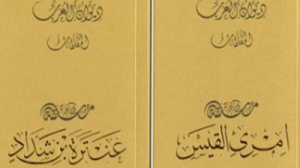 ديوان العرب
المعلقات
امرئ القيس
ديوان العرب
المعلقات
عنترة بن شداد